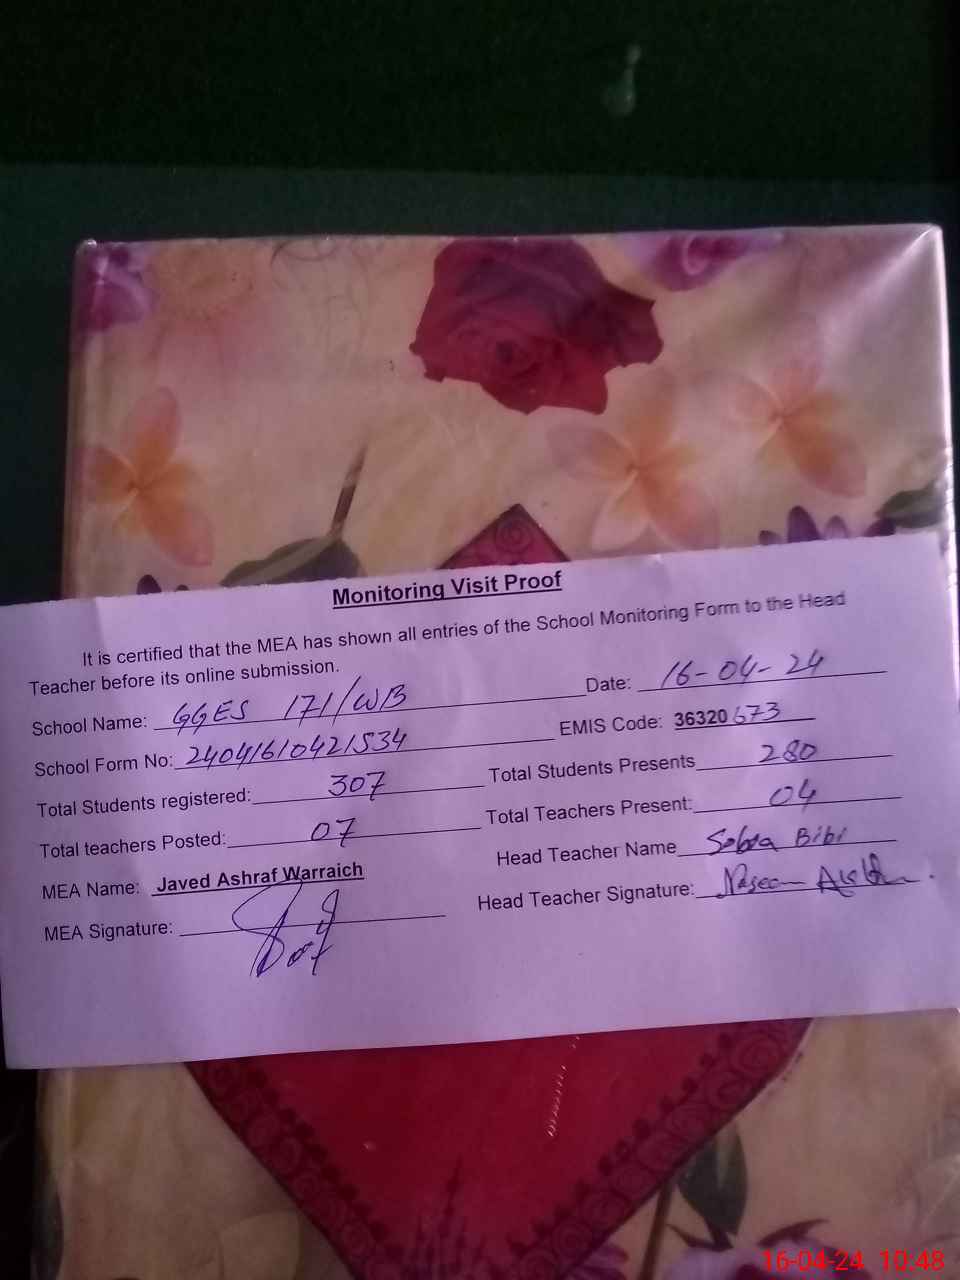 Monitoring Visit Proof
It is certified that the MEA has shown all entries of the School Monitoring Form to the Head
Teacher before its online submission.
School Name: GGES 171/WB Date: 16-04-24
School Form No: 24041610421534 EMIS Code: 36320673
Total Students registered: 307 Total Students Presents 280
Total teachers Posted: 07 Total Teachers Present: 04
MEA Name: Javed Ashraf Warraich Head Teacher Name Sabra Bibi
MEA Signature: Head Teacher Signature: Naseem
16-04-24 10:48